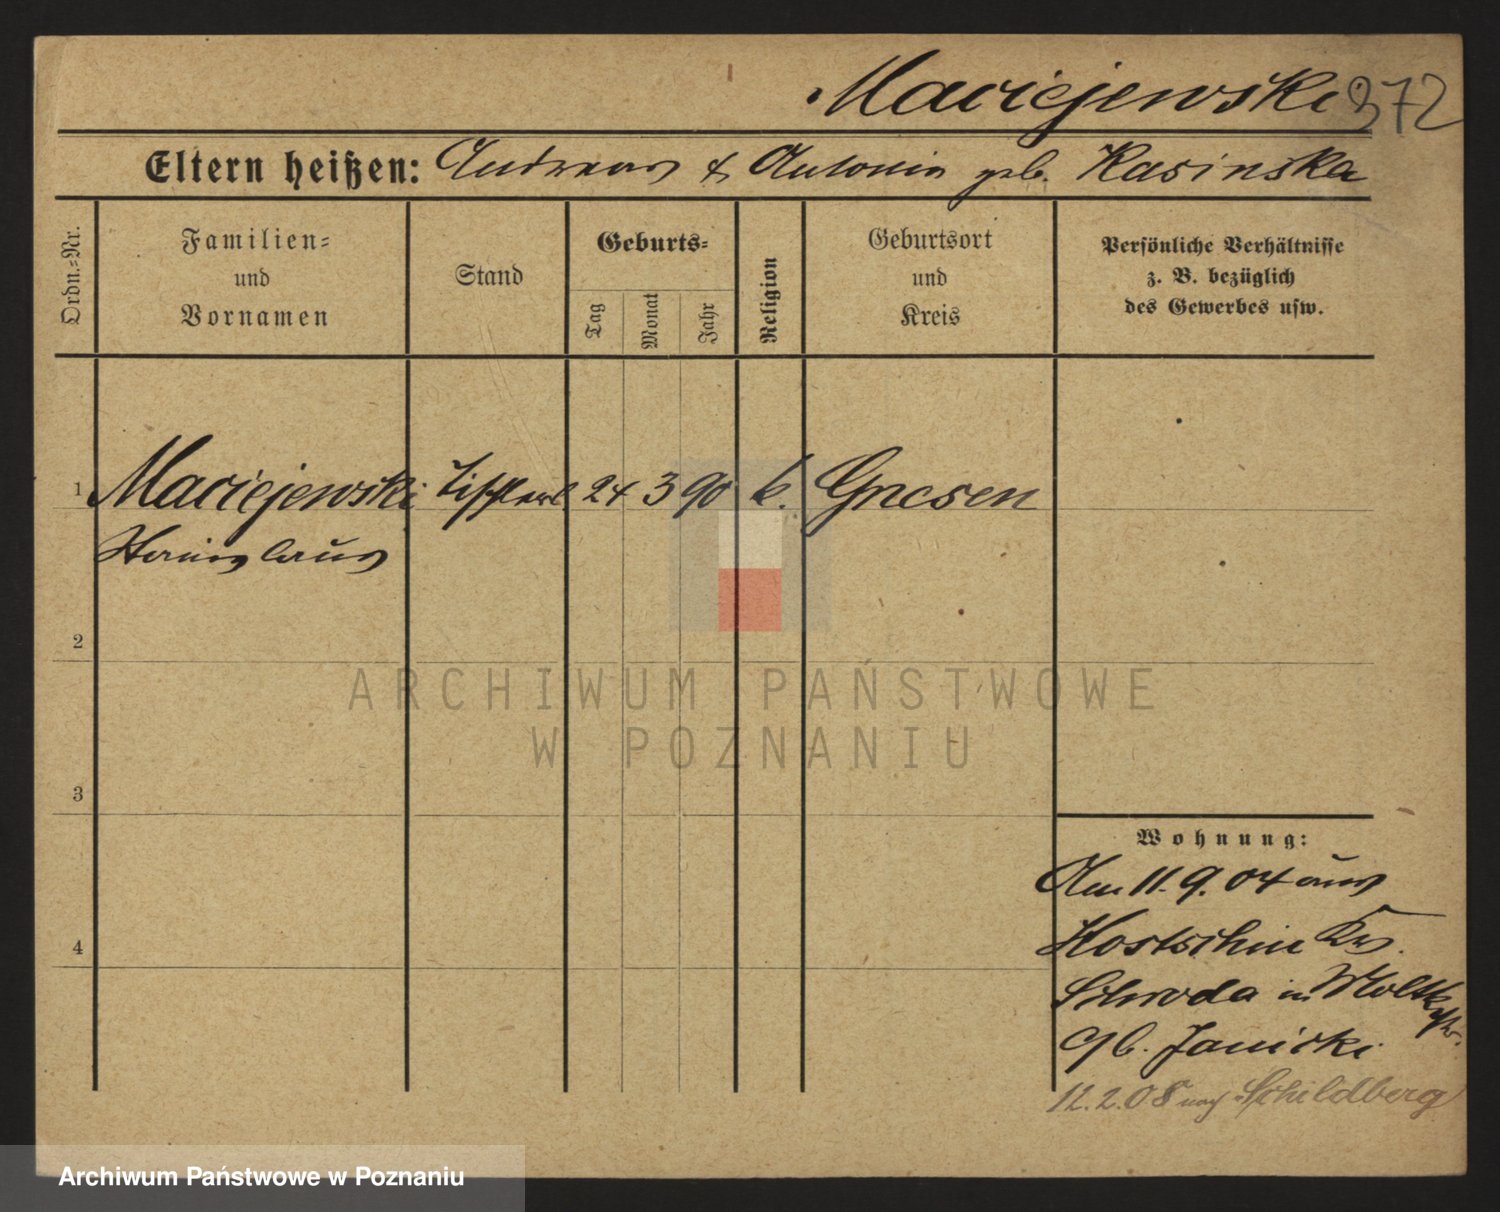 Maciejewski 372
Eltern heißen: Andreas & Antonia geb. Kasinska
Ordn.-Nr.
Familien-
und
Vornamen
Stand
Geburts-
Tag
Monat
Jahr
Religion
Geburtsort
und
Kreis
Persönliche Verhältnisse
z. B. bezüglich
des Gewerbes usw.
1 Maciejewski Tischlerl. 24 3 90 k. Gnesen
Stanislaus
2
ARCHIWUM PAŃSTWOWE
W POZNANIU
3
Wohnung:
Am 11.9.04 aus
4 Kostschin Krs.
Schroda in Moltkestr.
9 b. Janicki
12.2.08 nach Schildberg
Archiwum Państwowe w Poznaniu